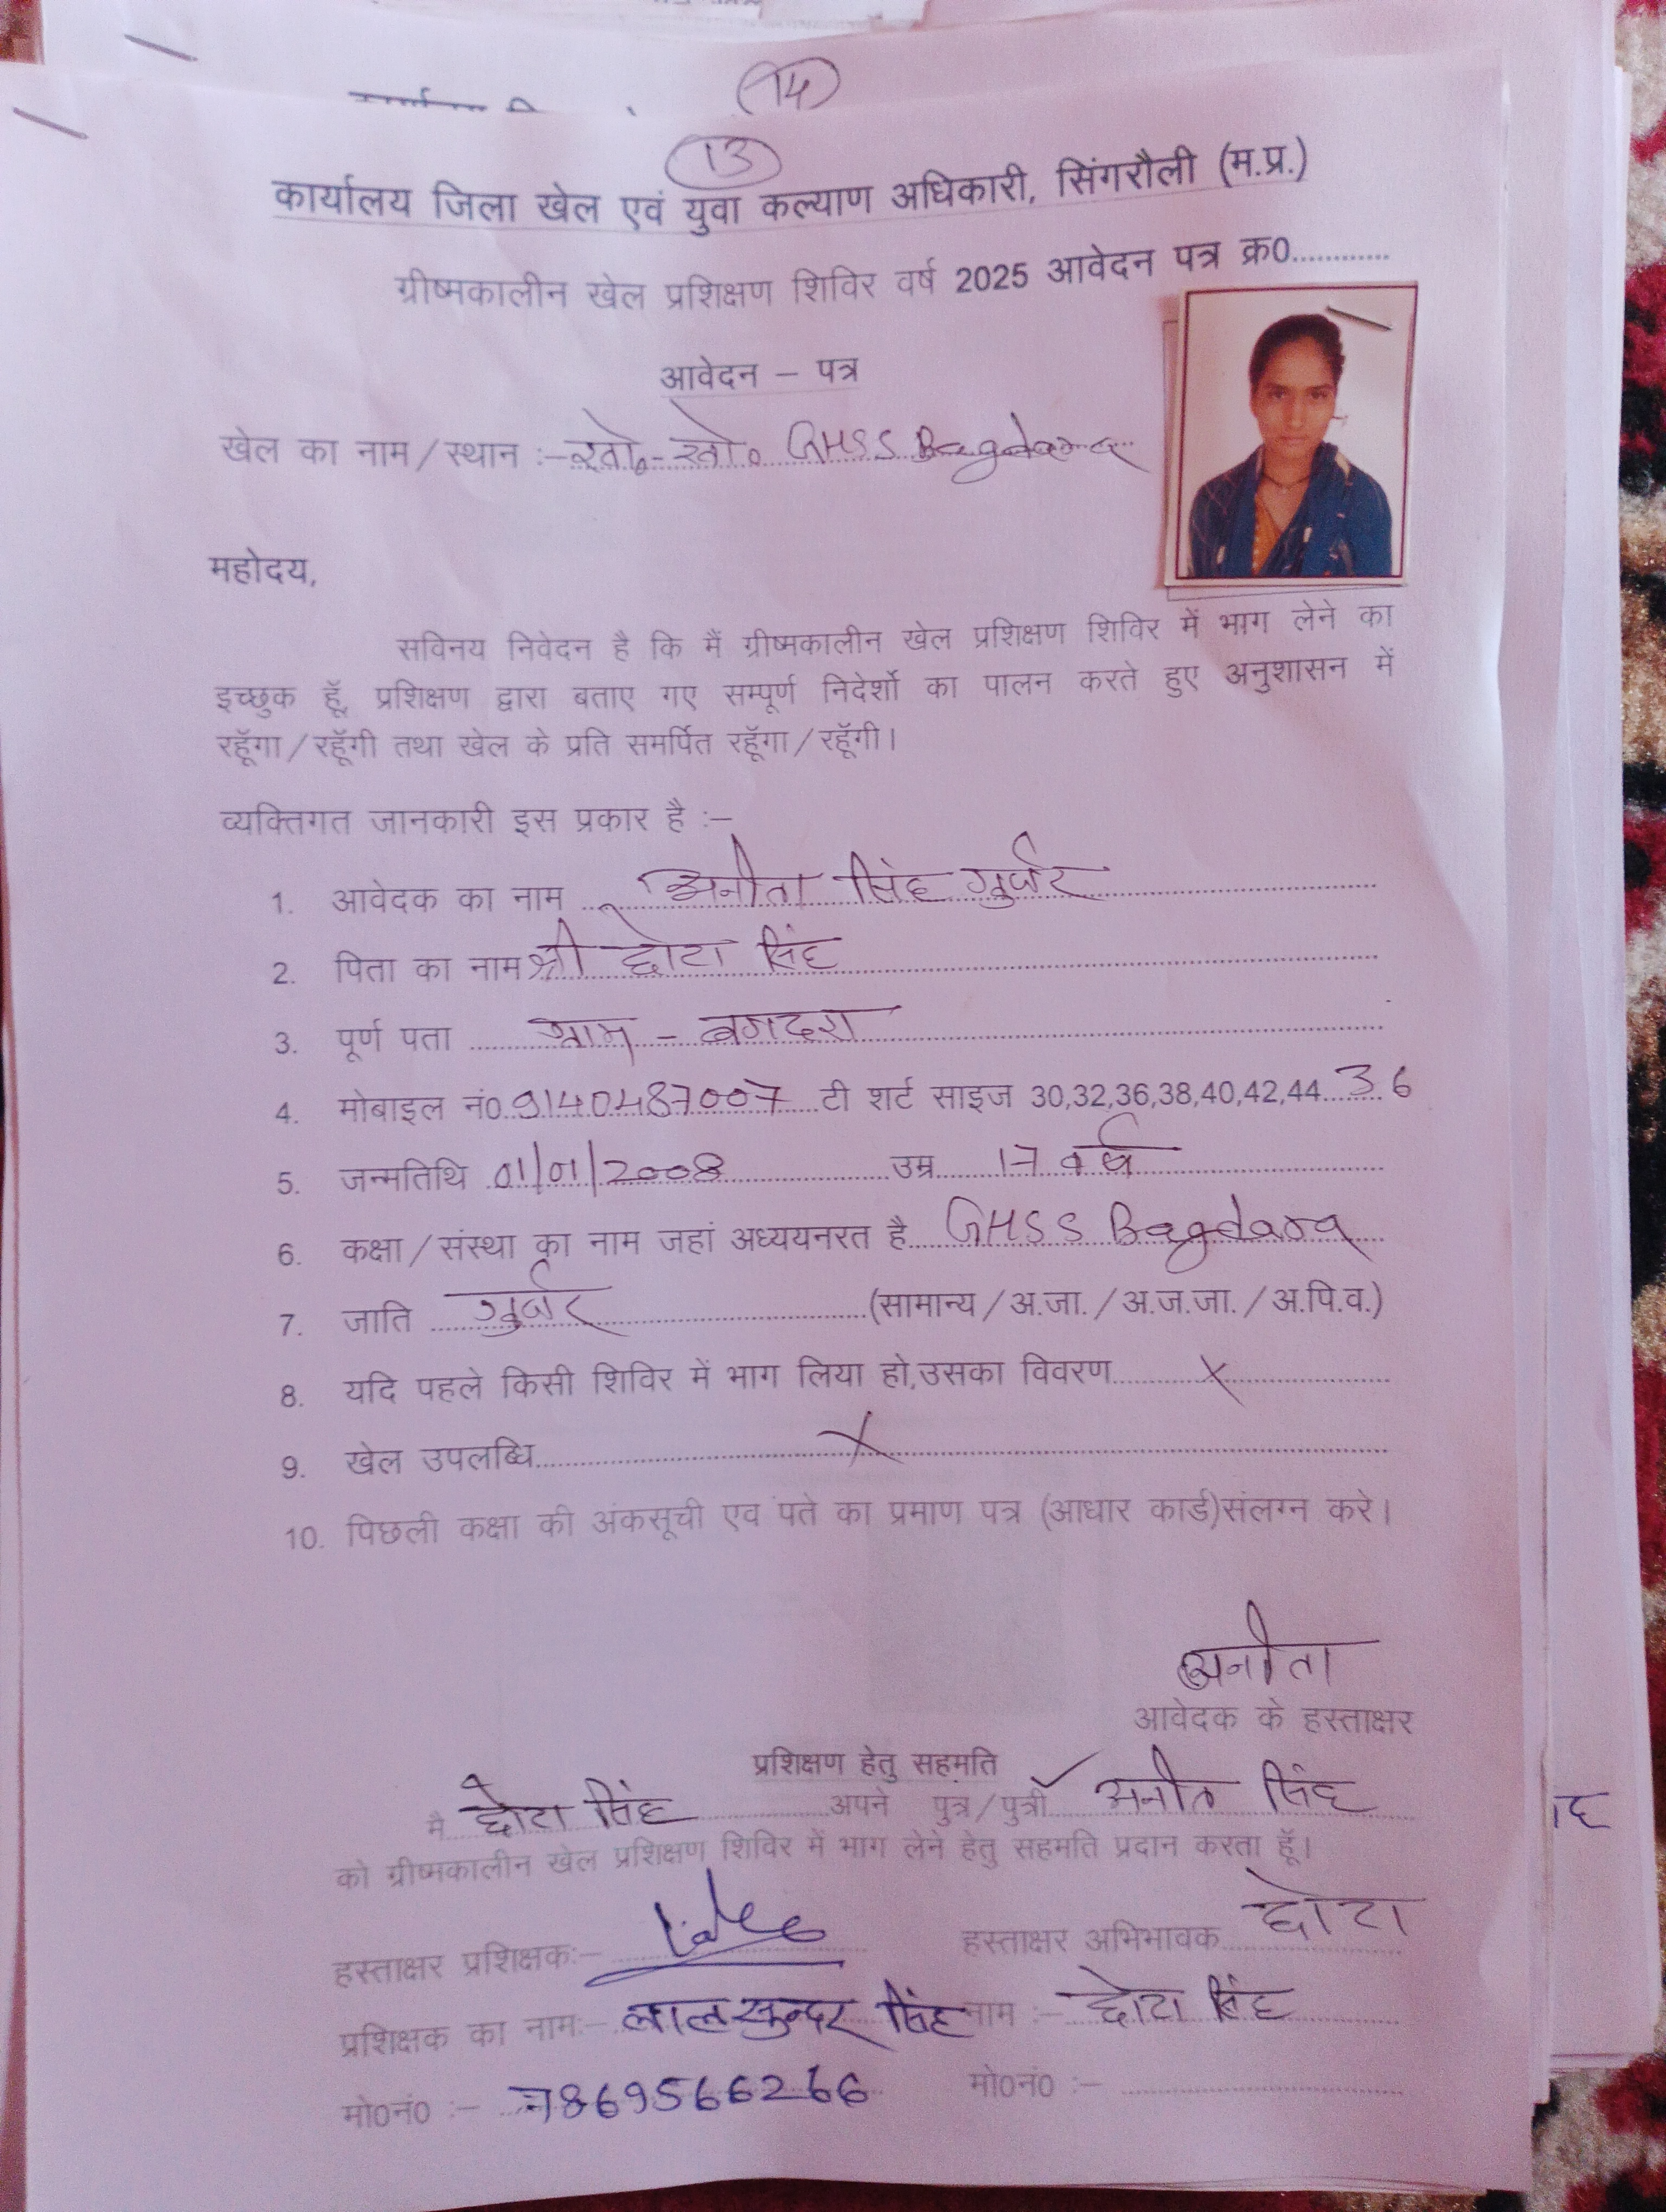 14
13
कार्यालय जिला खेल एवं युवा कल्याण अधिकारी, सिंगरौली (म.प्र.)
ग्रीष्मकालीन खेल प्रशिक्षण शिविर वर्ष 2025 आवेदन पत्र क्र0............
आवेदन – पत्र
खेल का नाम/स्थान :– खो॰-खो॰ GHSS Bagdara
महोदय,
सविनय निवेदन है कि मैं ग्रीष्मकालीन खेल प्रशिक्षण शिविर में भाग लेने का
इच्छुक हूॅ, प्रशिक्षण द्वारा बताए गए सम्पूर्ण निदेर्शो का पालन करते हुए अनुशासन में
रहूॅगा/रहूॅगी तथा खेल के प्रति समर्पित रहूॅगा/रहूॅगी।
व्यक्तिगत जानकारी इस प्रकार है :–
1. आवेदक का नाम अनीता सिंह गुर्जर
2. पिता का नाम श्री छोटा सिंह
3. पूर्ण पता ग्राम - बगदरा
4. मोबाइल नं0 9140487007 टी शर्ट साइज 30,32,36,38,40,42,44 36
5. जन्मतिथि 01/01/2008 उम्र 17 वर्ष
6. कक्षा/संस्था का नाम जहां अध्ययनरत है GHSS Bagdara
7. जाति गुर्जर (सामान्य/अ.जा./अ.ज.जा./अ.पि.व.)
8. यदि पहले किसी शिविर में भाग लिया हो,उसका विवरण X
9. खेल उपलब्धि X
10. पिछली कक्षा की अंकसूची एव पते का प्रमाण पत्र (आधार कार्ड)संलग्न करे।
अनीता
आवेदक के हस्ताक्षर
प्रशिक्षण हेतु सहमति
मै छोटा सिंह अपने पुत्र/पुत्री ✓ अनीता सिंह
को ग्रीष्मकालीन खेल प्रशिक्षण शिविर में भाग लेने हेतु सहमति प्रदान करता हूॅ।
हस्ताक्षर प्रशिक्षक:– हस्ताक्षर अभिभावक छोटा
प्रशिक्षक का नाम:– लालसुन्दर सिंह नाम :– छोटा सिंह
मो0नं0 :– 7869566266 मो0नं0 :–